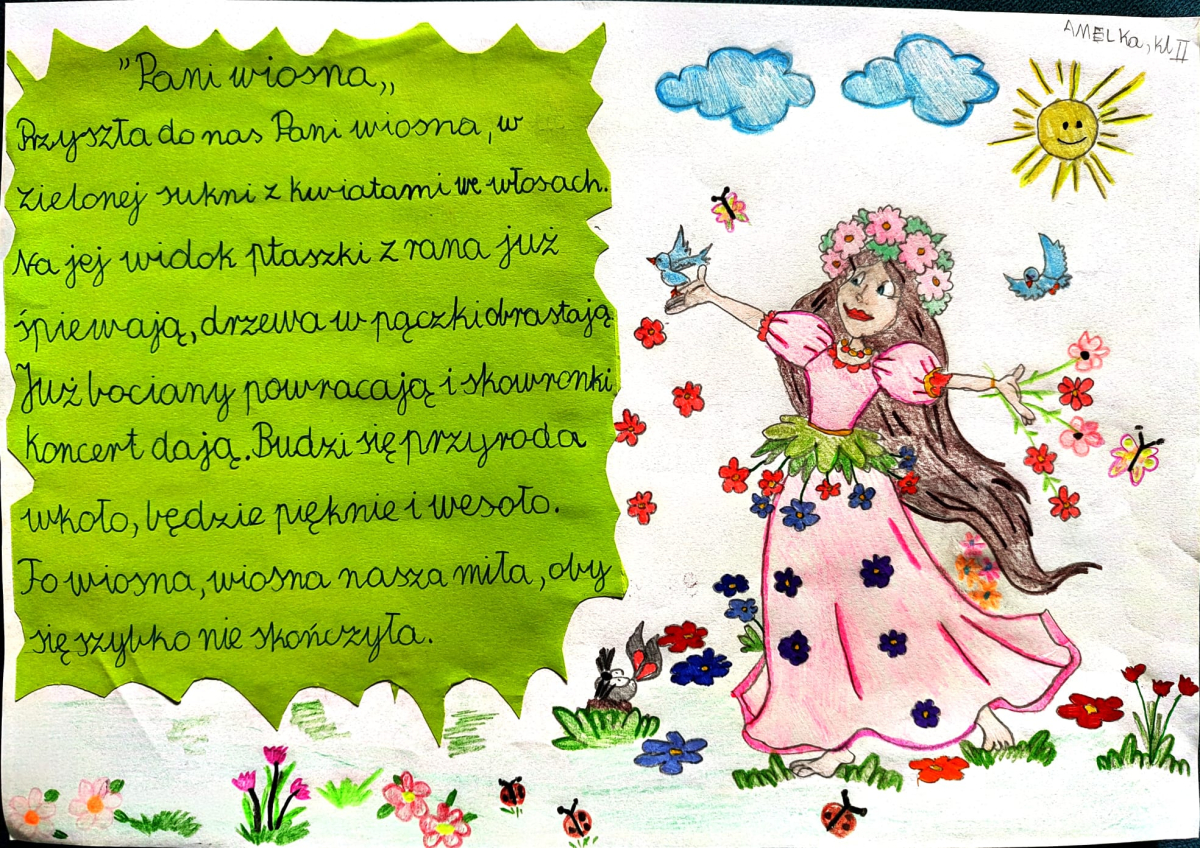 AMELKa, kl II
"Pani wiosna,,
Przyszła do nas Pani wiosna, w
zielonej sukni z kwiatami we włosach.
Na jej widok ptaszki z rana już
śpiewają, drzewa w pączki obrastają
Już bociany powracają i skowronki
koncert dają. Budzi się przyroda
wkoło, będzie pięknie i wesoło.
To wiosna, wiosna nasza miła, oby
się szybko nie skończyła.